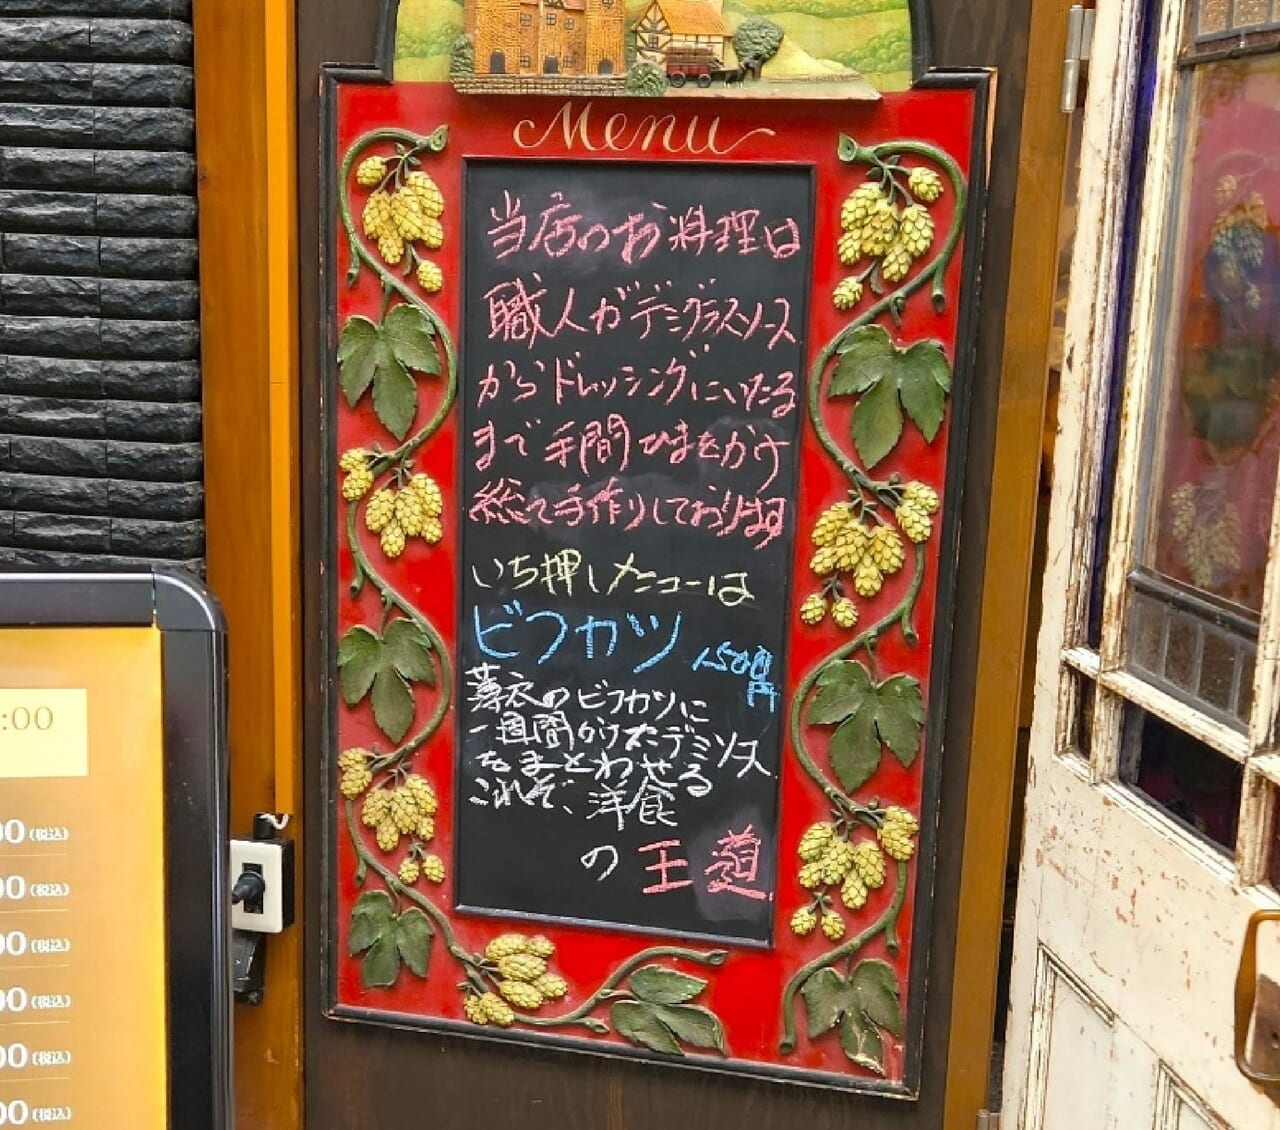 Menu
当店のお料理は
職人がデミグラスソース
からドレッシングにいたる
まで手間ひまをかけ
総て手作りしております
いち押しメニューは
ビフカツ 1,500円
薄衣のビフカツに
一週間かけたデミソース
をまとわせる
これぞ、洋食
の王道
:00
00(税込)
00(税込)
00(税込)
00(税込)
00(税込)
00(税込)